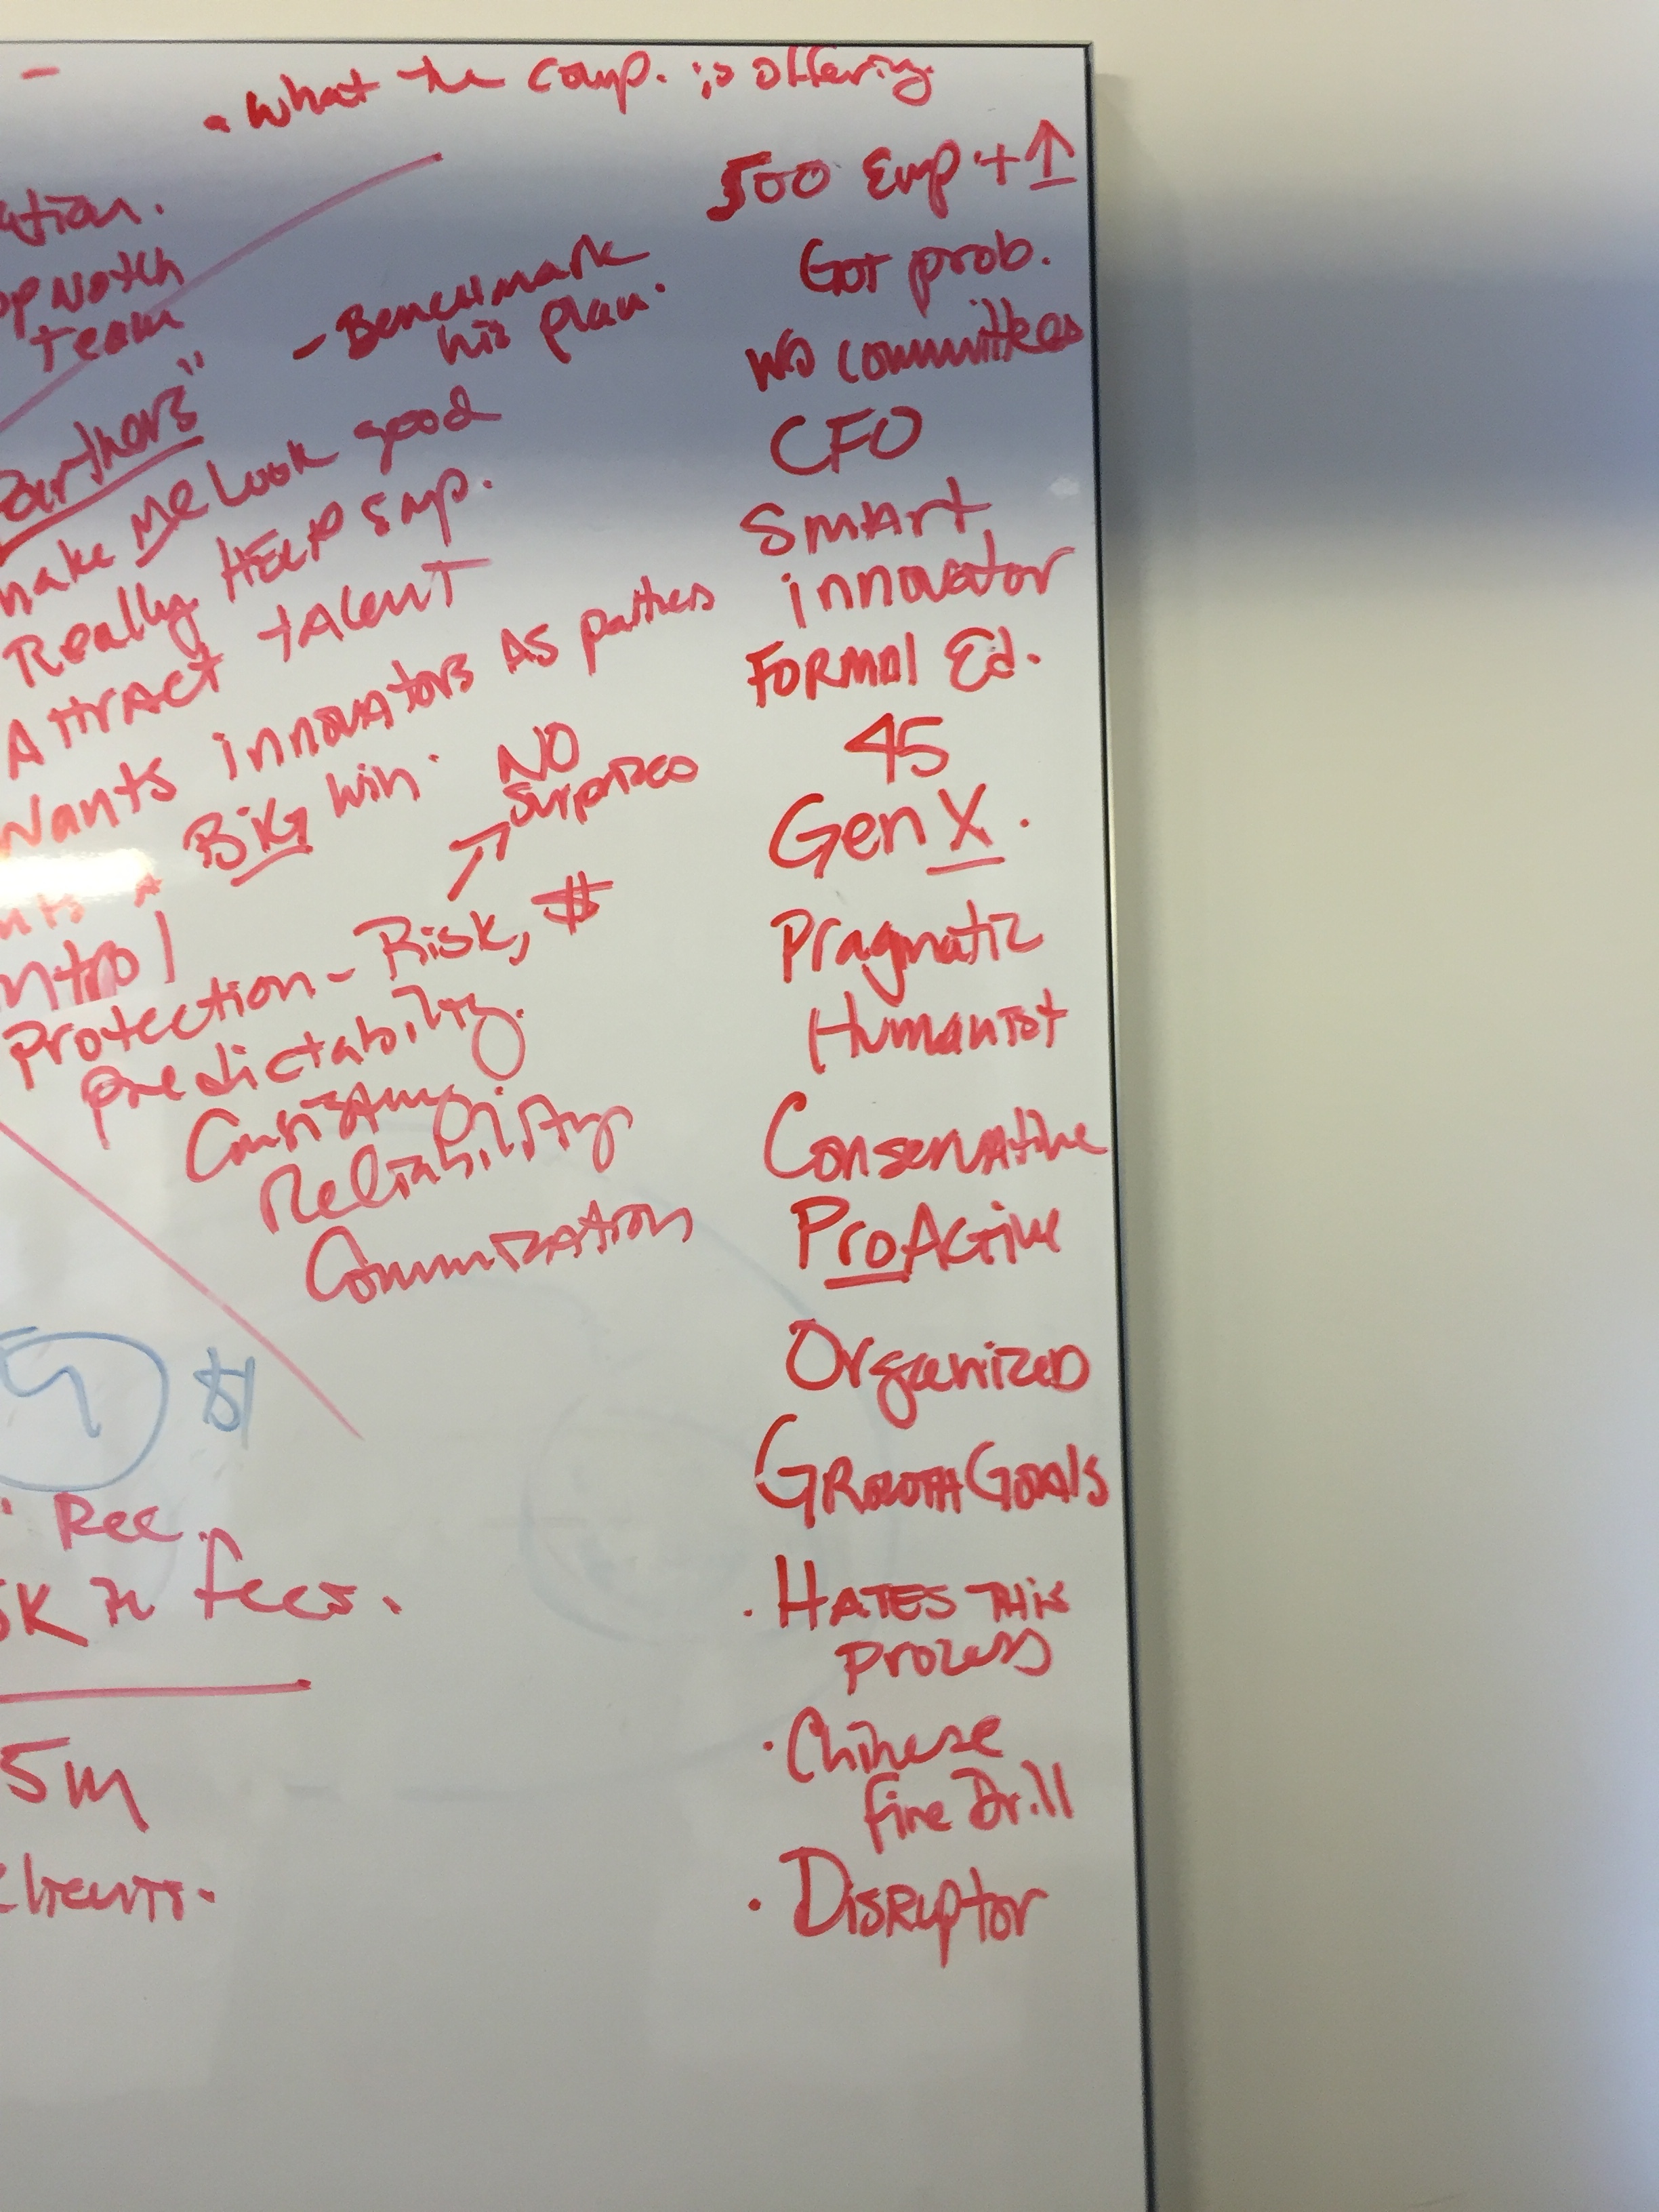 • What the comp. is offering.
ation.
op Notch
Team
- Benchmark
his plan.
Partners"
make me Look good
Really HELP Emp.
Attract talent
Wants innovators As partners
BIG Win.
NO
Surprizes
ntrol
Protection - Risk, $
Predictability.
Consistency
Reliability
Communization
$
Rec.
5K in fees.
5m
Clients.
500 Emp + ↑
Got prob.
W/ committees
CFO
Smart
innovator
FORMAl Ed.
45
Gen X.
Pragmatic
Humanist
Conservative
ProActive
Organized
Growth Goals
• HATES THis
process
• Chinese
fire Drill
• Disruptor